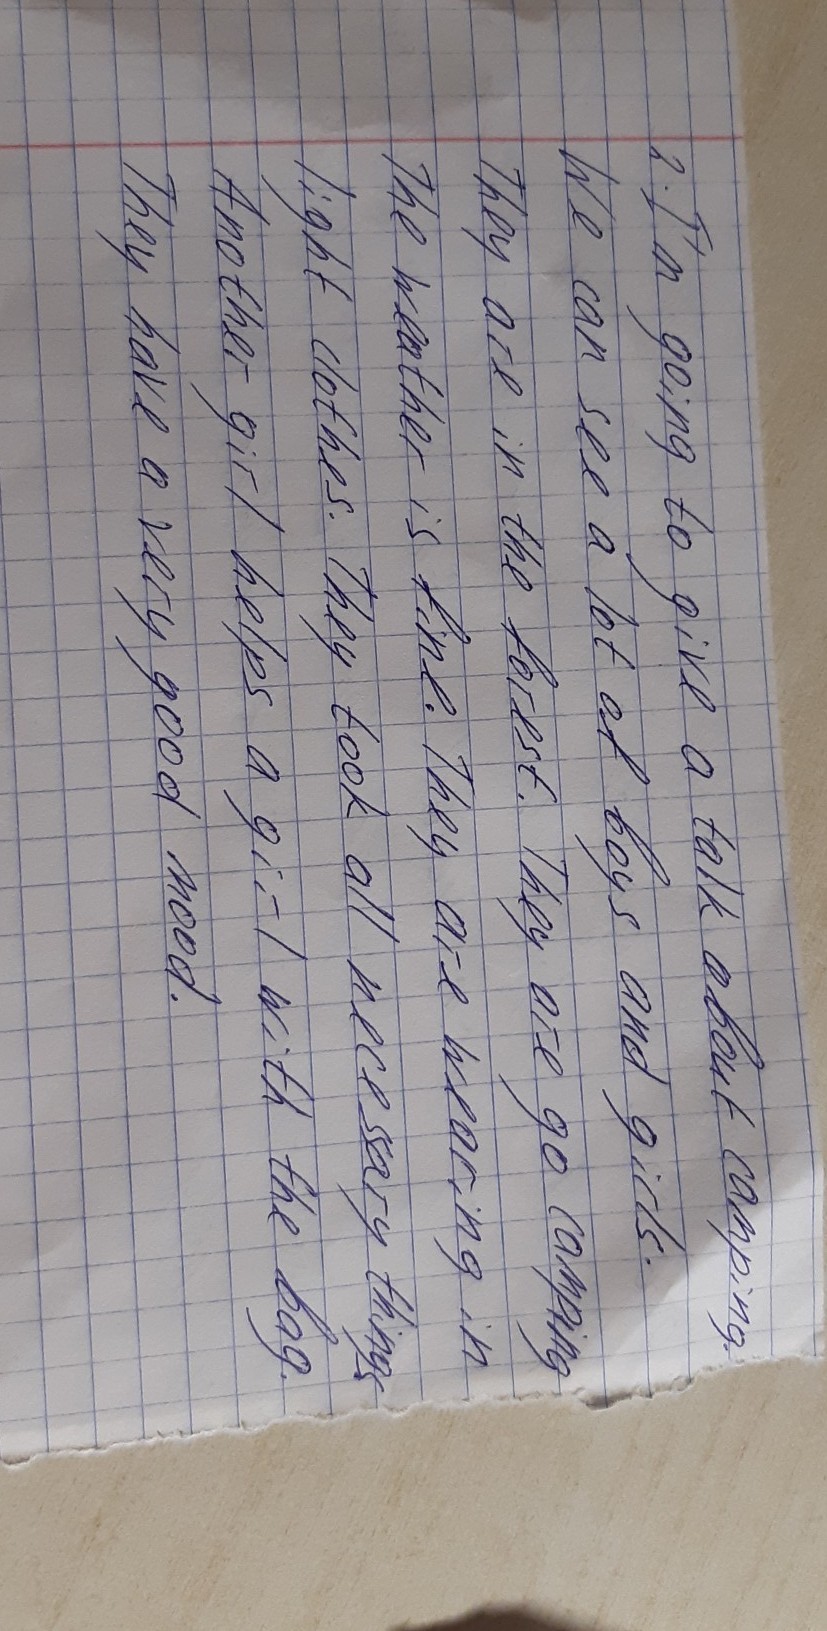 2. I'm going to give a talk about camping.
We can see a lot of boys and girls.
They are in the forest. They are go camping
The weather is fine. They are wearing in
light clothes. They took all necessary things
Another girl helps a girl with the bag.
They have a very good mood.